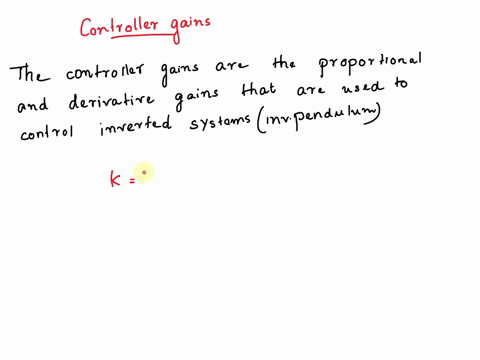 Controller gains
The controller gains are the proportional
and derivative gains that are used to
control inverted systems (inv.pendulum)
K =